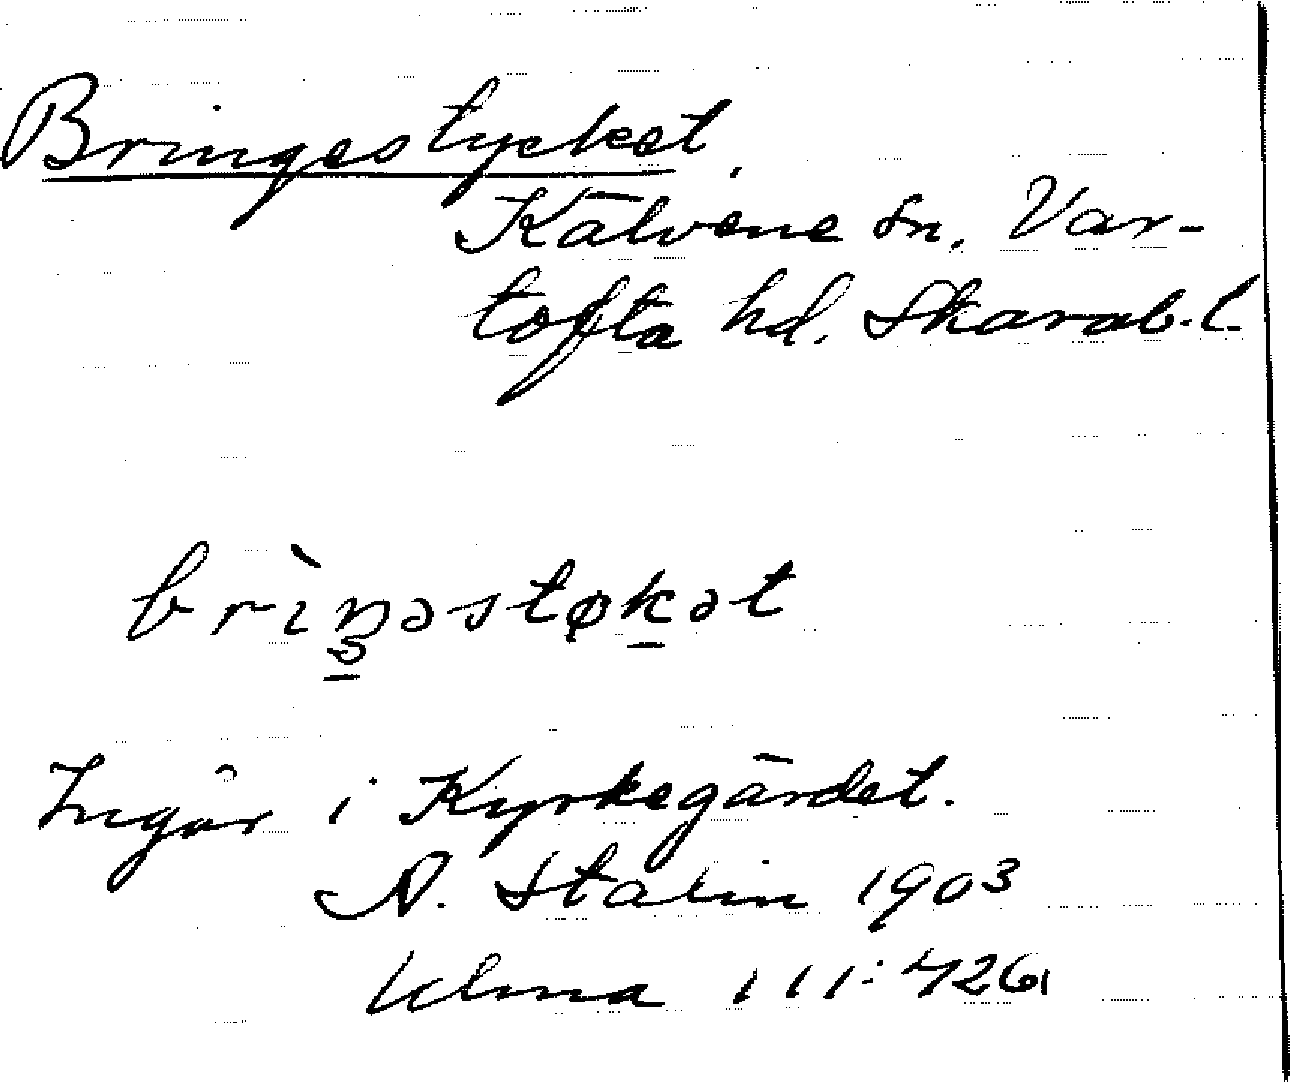 Bringestycket,
Kälvene sn. Var-
tofta hd. Skarab. l.
brìŋəstøkət
Ingår i Kyrkegärdet.
N. Stalin 1903
Ulma 111:426